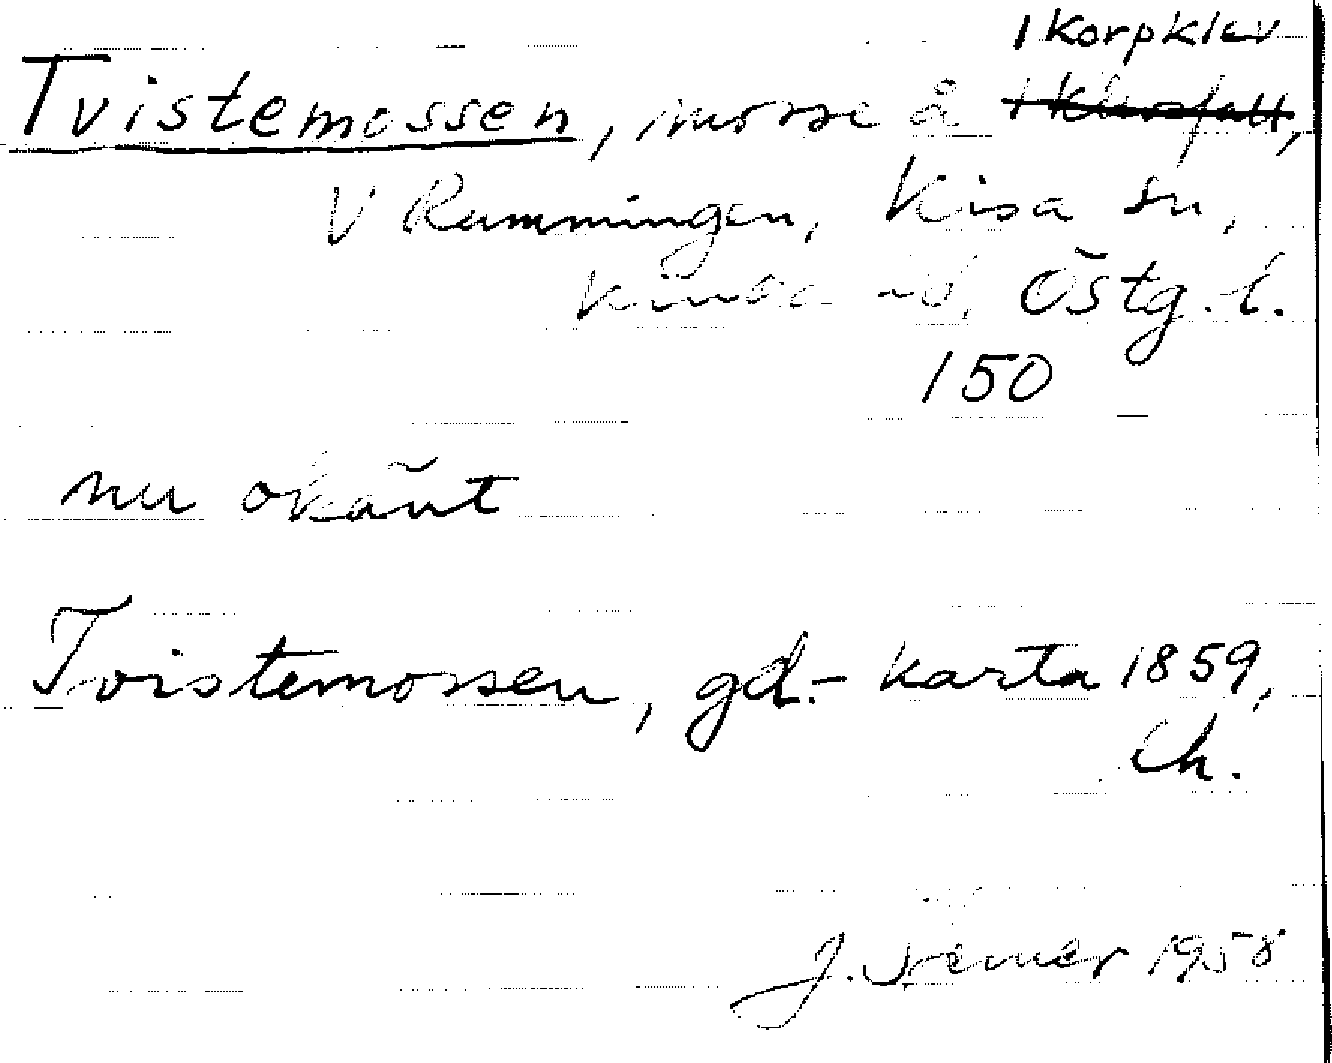 1 Korpklev
Tvistemossen, mosse å
V Rammingen, Kisa sn,
Kinda hd, Östg. l.
150
nu okänt
Tvistemossen, gd.- karta 1859,
Ch.
J. 1958